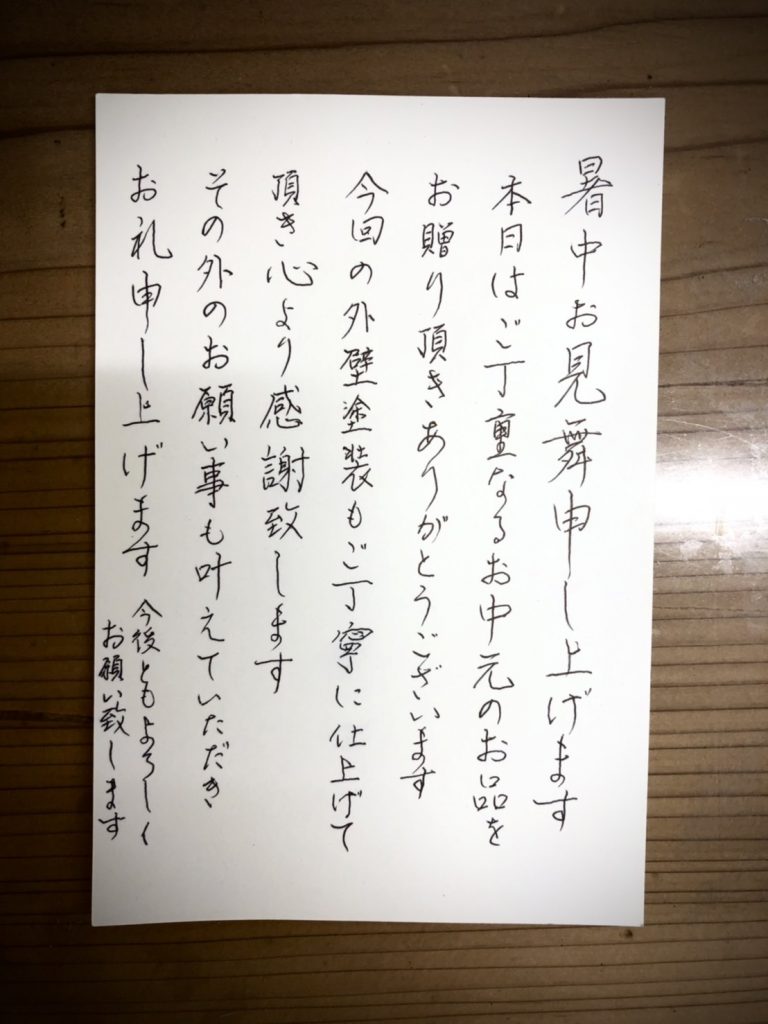 暑中お見舞申し上げます
本日はご丁重なるお中元のお品を
お贈り頂きありがとうございます
今回の外壁塗装もご丁寧に仕上げて
頂き心より感謝致します
その外のお願い事も叶えていただき
お礼申し上げます
今後ともよろしく
お願い致します